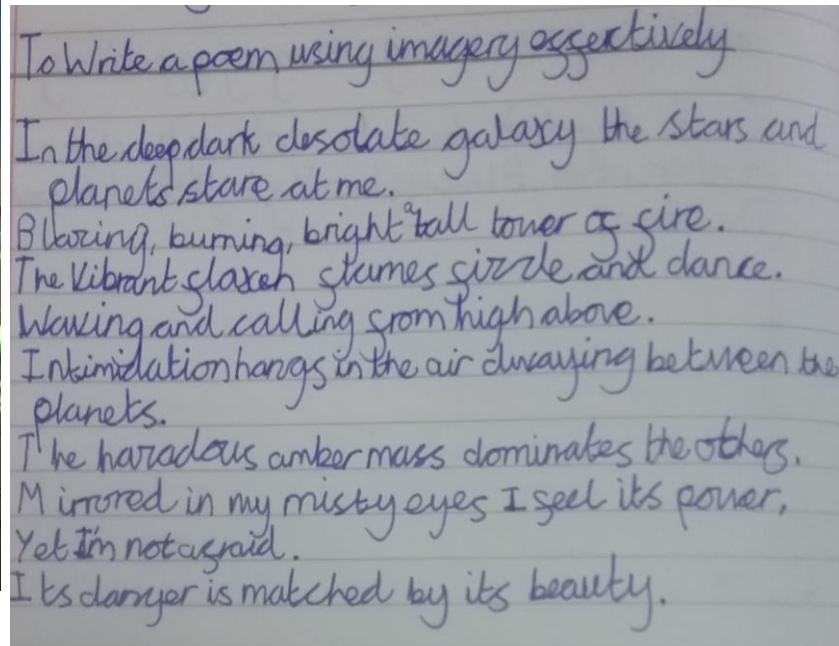 To Write a poem using imagery effectively
In the deep dark desolate galaxy the stars and
planets stare at me.
Blazing, burning, bright a tall tower of fire.
The Vibrant flaxen flames sizzle and dance.
Waving and calling from high above.
Intimidation hangs in the air swaying between the
planets.
The haradous amber mass dominates the others.
Mirrored in my misty eyes I feel its power,
Yet I'm not afraid.
Its danger is matched by its beauty.